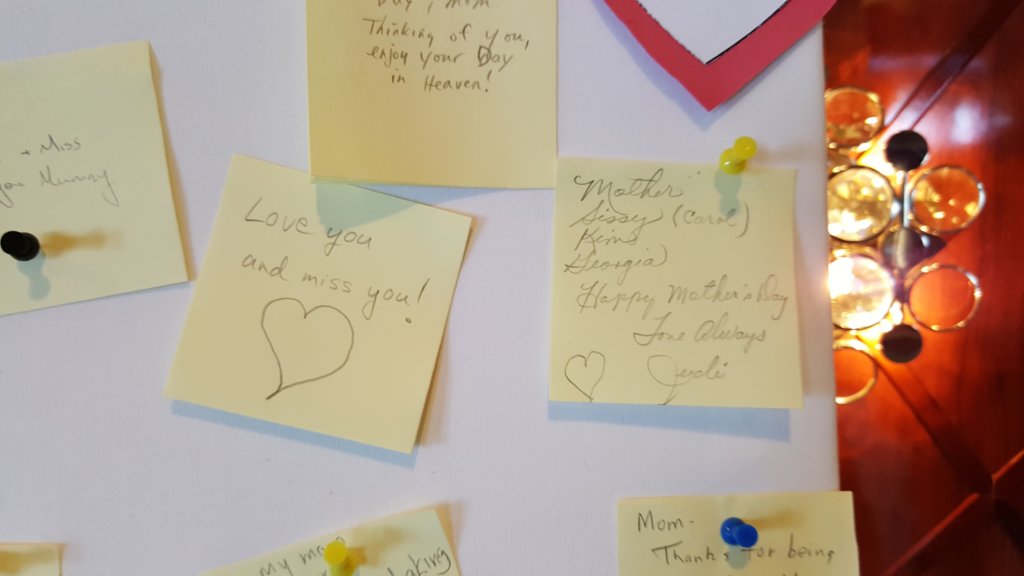 Day, Mom.
Thinking of you,
enjoy your Day
in Heaven!
+ Miss
you Mummy
Love you
and miss you!
"Mother"
Sissy (Carol)
Kim
Georgia
Happy Mother's Day
Love Always
Judi
my mom
Mom-
Thanks for being